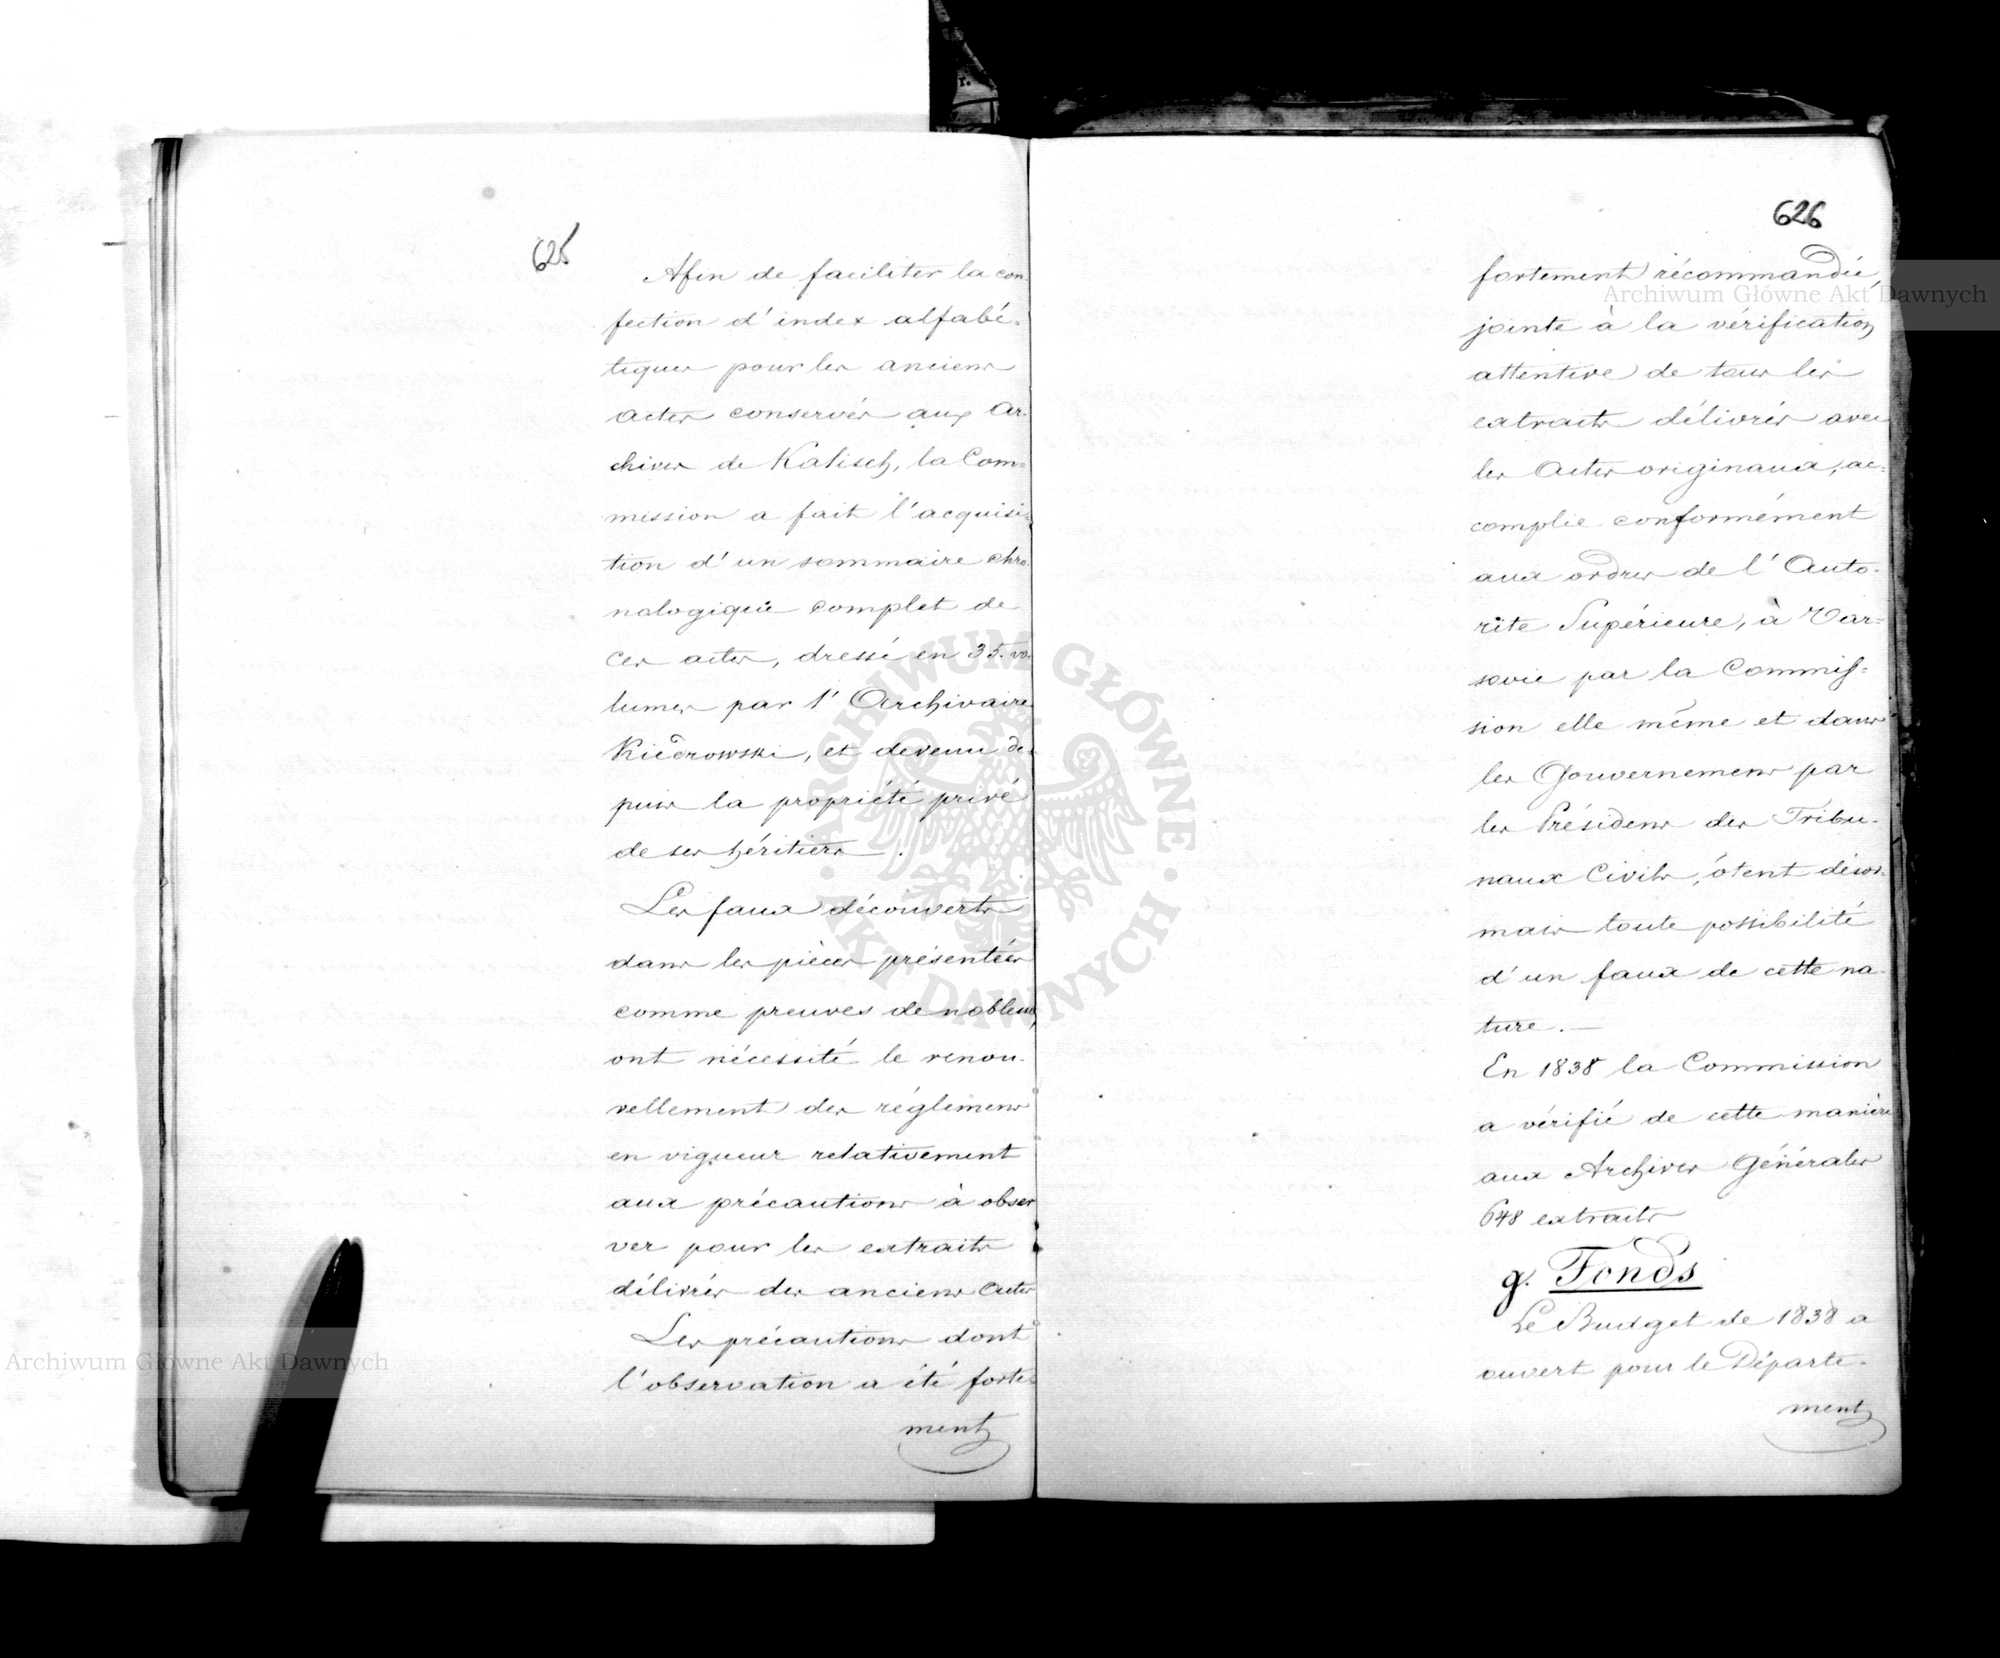 625
Afin de faciliter la con-
fection d'index alfabé-
tiques pour les anciens
actes conservés aux Ar-
chives de Kalisch, la Com-
mission a fait l'acquisi-
tion d'un sommaire chro-
nologique complet de
ces actes, dressé en 35. vo-
lumes par l'Archivaire
Kiedrowski, et devenu de-
puis la propriété privé
de ses héritiers.
Les faux découverts
dans les pièces présentées
comme preuves de noblesse,
ont nécessité le renou-
vellement des réglemens
en vigueur relativement
aux précautions à obser
ver pour les extraits
délivrés des anciens actes
Les précautions dont
l'observation a été forte-
ment
626
fortement récommandée,
jointe à la vérification
attentive de tous les
extraits délivrés avec
les Actes originaux, ac-
complie conformément
aux ordres de l'Auto-
rité Supérieure, à Var-
sovie par la Commis-
sion elle même et dans
les Gouvernemens par
les Présidens des Tribu-
naux Civils, ôtent désor-
mais toute possibilité
d'un faux de cette na-
ture. —
En 1838 la Commission
a vérifié de cette manière
aux Archives Générales
648 extraits
g. Fonds
Le Budget de 1838 a
ouvert pour le Départe-
ment
Archiwum Główne Akt Dawnych
Archiwum Główne Akt Dawnych
ARCHIWUM GŁÓWNE · AKT DAWNYCH ·